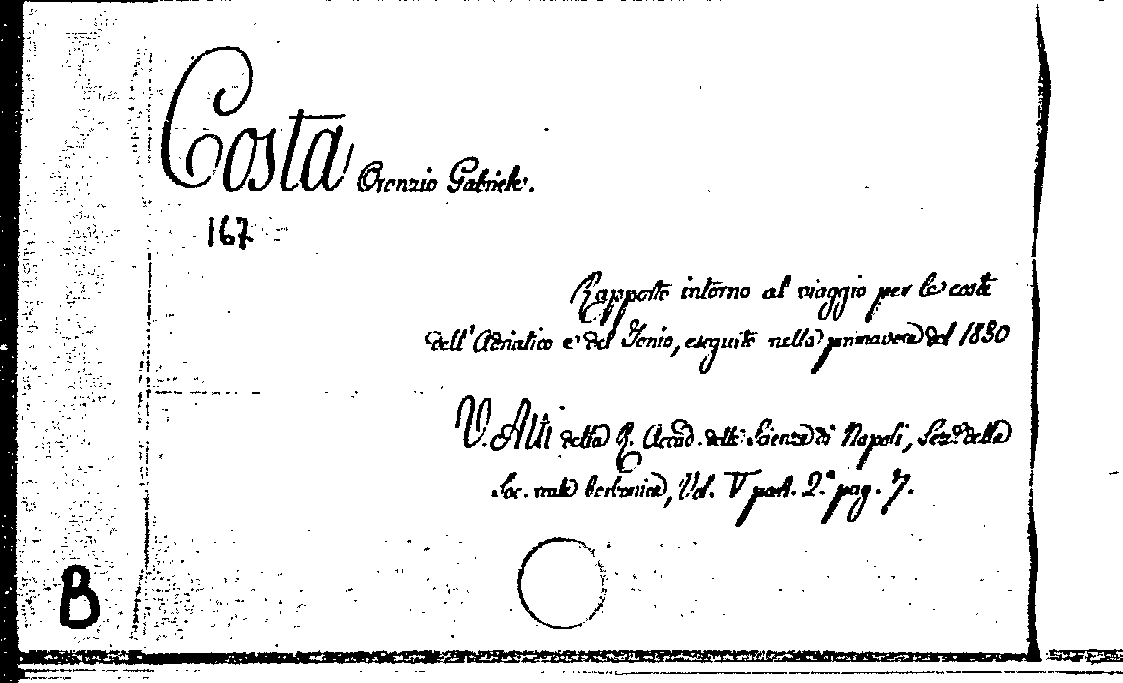 Costa Oronzio Gabriele.
167
Rapporto intorno al viaggio per le coste
dell'Adriatico e del Jonio, eseguito nella primavera del 1830
V. Atti della R. Accad. delle Scienze di Napoli, Sez.e della
Soc. reale borbonica, Vol. V part. 2.a pag. 7.
B